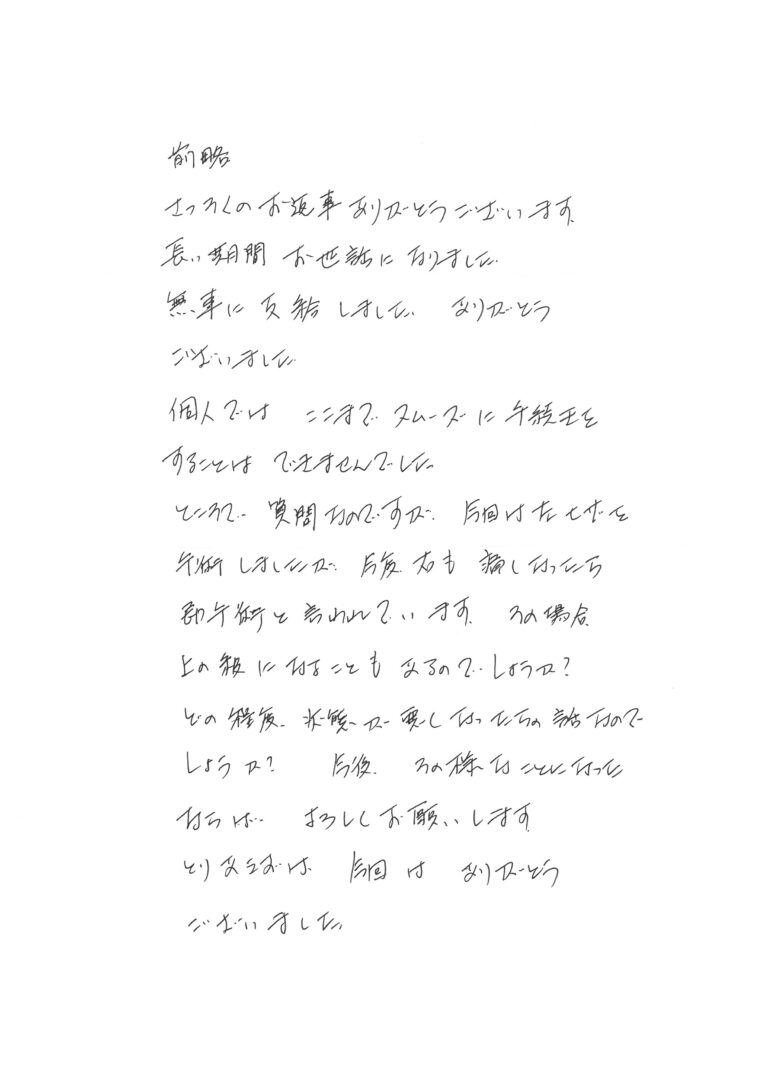 前略
さっそくのお返事ありがとうございます。
長い期間 お世話になりました。
無事に受給しました。 ありがとう
ございました。
個人では ここまで スムーズに手続きを
することは できませんでした。
ところで 質問なのですが、 今回は左ヒザを
手術しましたが、 今後 右も 痛くなったら
即手術と言われています。 その場合
上の級になることもあるのでしょうか?
どの程度、状態が悪くなったらの話なので
しょうか? 今後、 その様なことになった
ならば よろしくお願いします
とりあえずは、 今回は ありがとう
ございました。